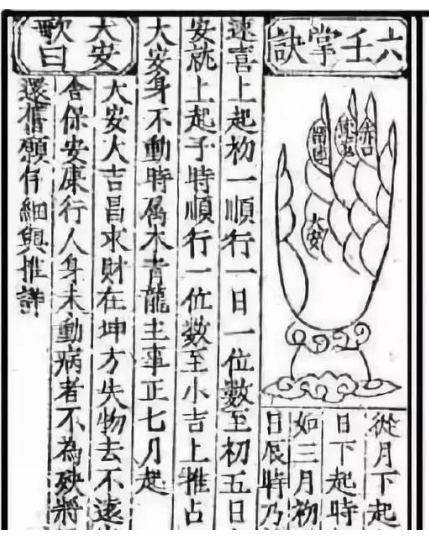 六壬掌訣
留連
速喜
赤口
大安
從月下起
日下起時
如三月初
日辰時乃
速喜上起初一順行一日一位數至初五日
安就上起子時順行一位數至小吉上推占
大安身不動時属木青龍主事正七月起
大安歌曰
大安大吉昌求財在坤方失物去不遠
舍保安康行人身未動病者不為殃將
還舊願仔細與推詳